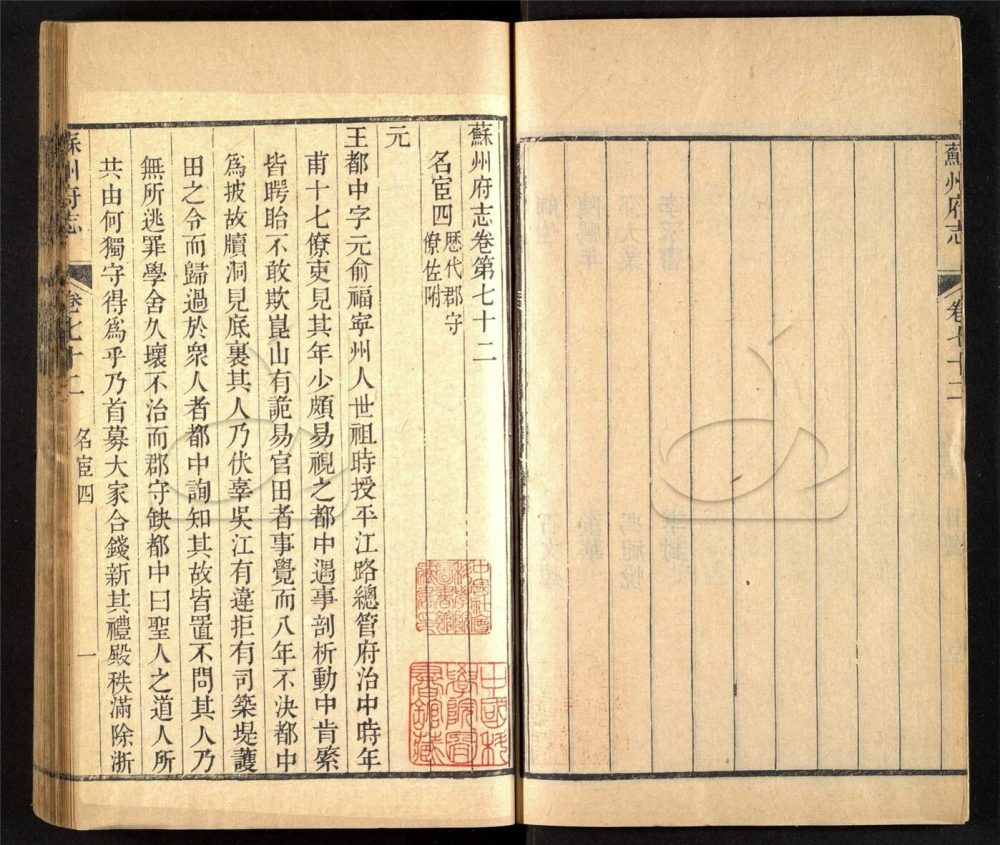 蘇州府志
卷七十二
蘇州府志卷第七十二
名宦四
歷代郡守
僚佐附
元
王都中字元俞福寧州人世祖時授平江路總管府治中時年
甫十七僚吏見其年少頗易視之都中遇事剖析動中肯綮
皆愕眙不敢欺崑山有詭易官田者事覺而八年不決都中
爲披故牘洞見底裏其人乃伏辜吳江有違拒有司築堤護
田之令而歸過於衆人者都中詢知其故皆置不問其人乃
無所逃罪學舍久壞不治而郡守缺都中曰聖人之道人所
共由何獨守得爲乎乃首募大家合錢新其禮殿秩滿除浙
蘇州府志
卷七十二
名宦四
一
中國科
學院圖
書館藏